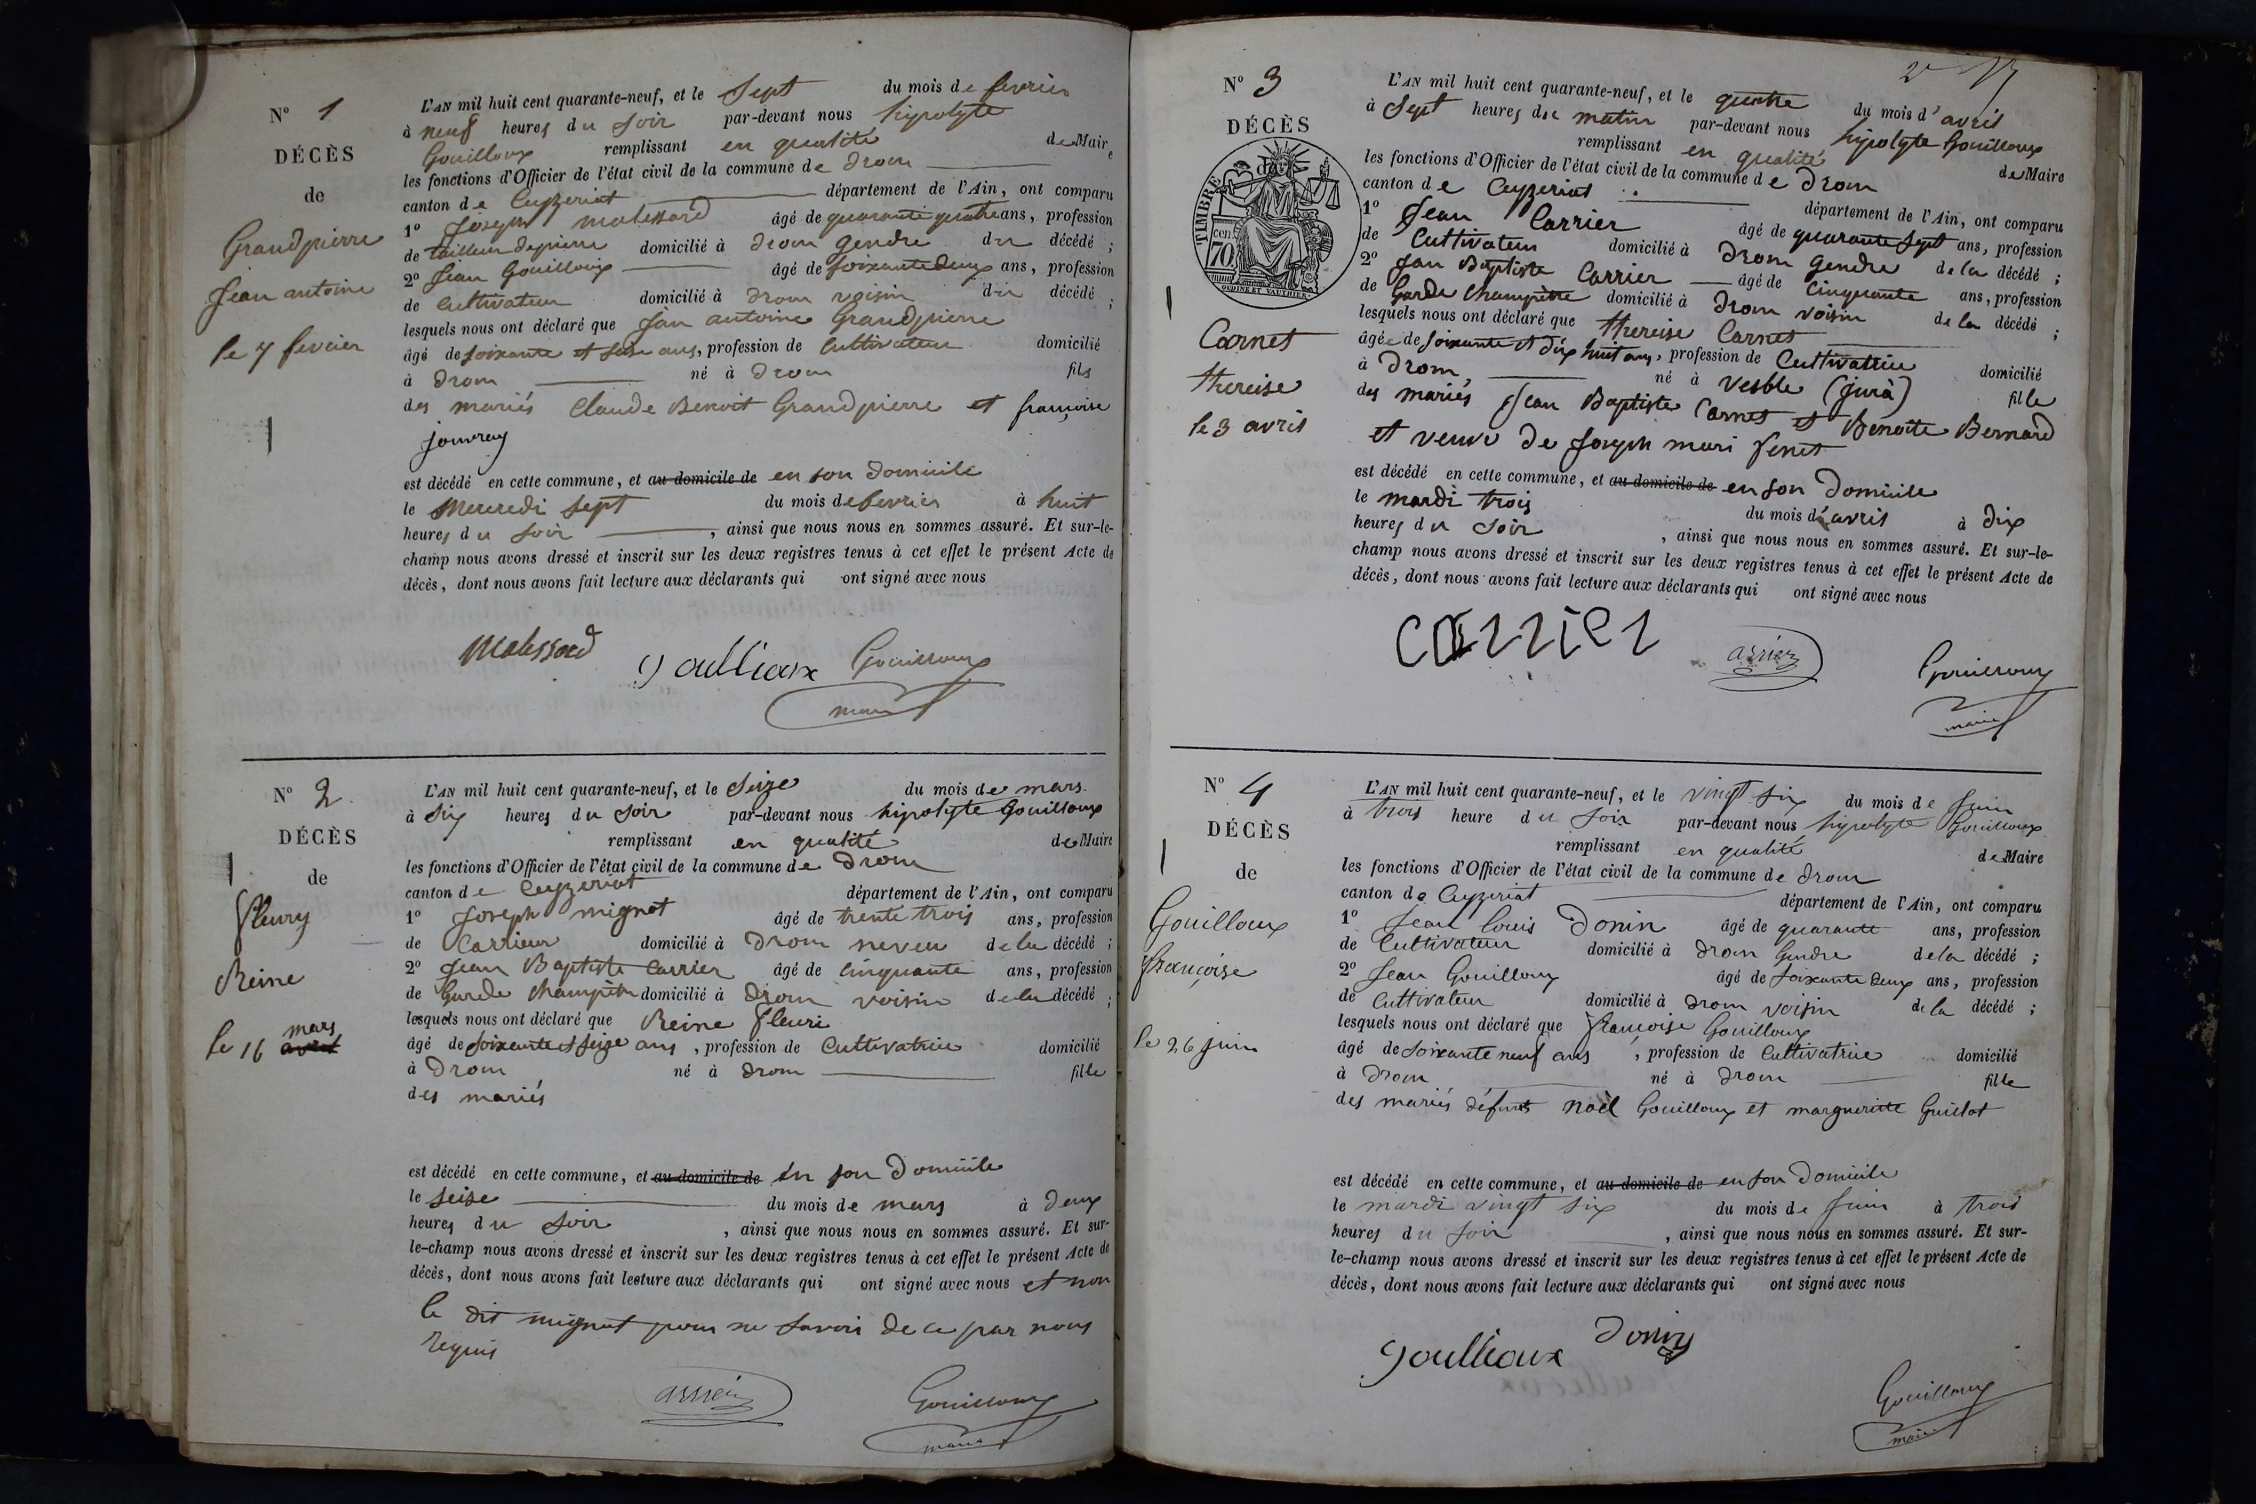 N° 1
DÉCÈS
de
Grandpierre
Jean antoine
le 7 fevrier
L'AN mil huit cent quarante-neuf, et le Sept du mois de fevrier
à neuf heures du soir par-devant nous hipolyte
Gouilloux remplissant en qualité de Maire
les fonctions d'Officier de l'état civil de la commune de Drom
canton de Ceyzeriat département de l'Ain, ont comparu
1° Joseph malessard âgé de quarante quatre ans, profession
de tailleur de pierre domicilié à Drom gendre du décédé ;
2° Jean Gouilloux âgé de soixante deux ans, profession
de Cultivateur domicilié à Drom voisin du décédé ;
lesquels nous ont déclaré que Jean antoine Grandpierre
âgé de soixante et seise ans, profession de Cultivateur domicilié
à Drom né à Drom fils
des mariés Claude Benoit Grandpierre et françoise
jouvray
est décédé en cette commune, et au domicile de en son Domicile
le Mercredi sept du mois de fevrier à huit
heures du soir, ainsi que nous nous en sommes assuré. Et sur-le-
champ nous avons dressé et inscrit sur les deux registres tenus à cet effet le présent Acte de
décès, dont nous avons fait lecture aux déclarants qui ont signé avec nous
Malessard goullioux Gouilloux
maire
N° 2
DÉCÈS
de
fleury
Reine
mars
le 16 avril
L'AN mil huit cent quarante-neuf, et le Seize du mois de mars
à Six heures du soir par-devant nous hipolyte Gouilloux
remplissant en qualité de Maire
les fonctions d'Officier de l'état civil de la commune de Drom
canton de Ceyzeriat département de l'Ain, ont comparu
1° Joseph mignot âgé de trente trois ans, profession
de Carrieur domicilié à Drom neveu de la décédé ;
2° Jean Baptiste Carrier âgé de Cinquante ans, profession
de Garde Champêtre domicilié à Drom voisin de la décédé ;
lesquels nous ont déclaré que Reine fleuri
âgé de soixante et seize ans, profession de Cultivatrice domicilié
à Drom né à Drom fille
des mariés
est décédé en cette commune, et au domicile de en son Domicile
le seise du mois de mars à Deux
heures du soir, ainsi que nous nous en sommes assuré. Et sur-
le-champ nous avons dressé et inscrit sur les deux registres tenus à cet effet le présent Acte de
décès, dont nous avons fait lecture aux déclarants qui ont signé avec nous et non
le dit mignot pour ne savoir de ce par nous
requis
Gouilloux
maire
N° 3
DÉCÈS
de
TIMBRE
70 cen
OUDINÉ ET VAUTHIER
Carnet
thereise
le 3 avril
L'AN mil huit cent quarante-neuf, et le quatre du mois d'avril
à Sept heures du matin par-devant nous hipolyte Gouilloux
remplissant en qualité de Maire
les fonctions d'Officier de l'état civil de la commune de Drom
canton de Ceyzeriat département de l'Ain, ont comparu
1° Jean Carrier âgé de quarante Sept ans, profession
de Cultivateur domicilié à Drom gendre de la décédé ;
2° Jean Baptiste Carrier âgé de Cinquante ans, profession
de Garde Champètre domicilié à Drom voisin de la décédé ;
lesquels nous ont déclaré que thereise Carnet
âgée de soixante et dix huit ans, profession de Cultivatrice domicilié
à Drom né à Vesble (jura) fille
des mariés Jean Baptiste Carnet et Benoite Bernard
et veuve de Joseph mari Venet
est décédé en cette commune, et au domicile de en son Domicile
le mardi trois du mois d'avril à dix
heures du soir, ainsi que nous nous en sommes assuré. Et sur-le-
champ nous avons dressé et inscrit sur les deux registres tenus à cet effet le présent Acte de
décès, dont nous avons fait lecture aux déclarants qui ont signé avec nous
Carrier Gouilloux
maire
N° 4
DÉCÈS
de
Gouilloux
françoise
le 26 juin
L'AN mil huit cent quarante-neuf, et le vingt six du mois de Juin
à trois heure du soir par-devant nous hipolyte Gouilloux
remplissant en qualité de Maire
les fonctions d'Officier de l'état civil de la commune de Drom
canton de Ceyzeriat département de l'Ain, ont comparu
1° Jean Louis Donin âgé de quarante ans, profession
de Cultivateur domicilié à Drom Gendre de la décédé ;
2° Jean Gouilloux âgé de soixante deux ans, profession
de Cultivateur domicilié à Drom voisin de la décédé ;
lesquels nous ont déclaré que françoise Gouilloux
âgé de soixante neuf ans, profession de Cultivatrice domicilié
à Drom né à Drom fille
des mariés défunts Noël Gouilloux et marguerite Guillot
est décédé en cette commune, et au domicile de en son Domicile
le mardi vingt six du mois de Juin à trois
heures du soir, ainsi que nous nous en sommes assuré. Et sur-
le-champ nous avons dressé et inscrit sur les deux registres tenus à cet effet le présent Acte de
décès, dont nous avons fait lecture aux déclarants qui ont signé avec nous
goullioux Donin
Gouilloux
maire